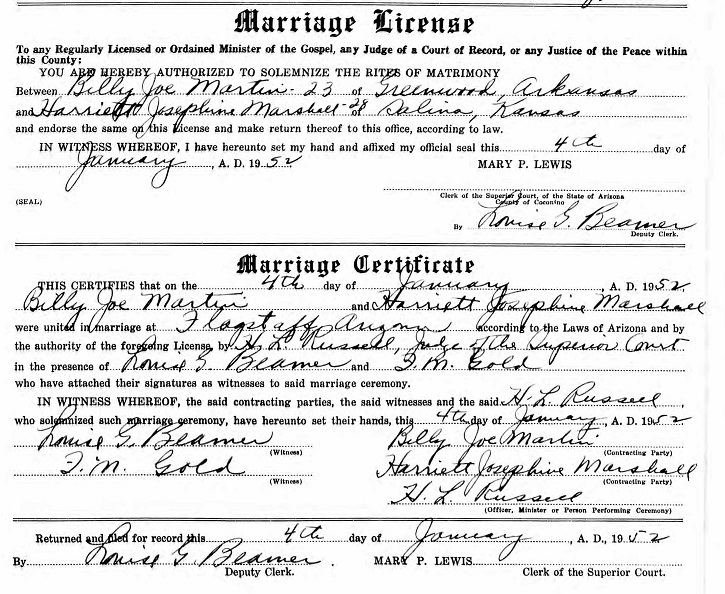 Marriage License
To any Regularly Licensed or Ordained Minister of the Gospel, any Judge of a Court of Record, or any Justice of the Peace within
this County:
YOU ARE HEREBY AUTHORIZED TO SOLEMNIZE THE RITES OF MATRIMONY
Between Billy Joe Martin - 23 of Greenwood, Arkansas
and Harriett Josephine Marshall - 28 of Salina, Kansas
and endorse the same on this License and make return thereof to this office, according to law.
IN WITNESS WHEREOF, I have hereunto set my hand and affixed my official seal this 4th day of
January, A. D. 1952 MARY P. LEWIS
Clerk of the Superior Court, of the State of Arizona
(SEAL) County of Coconino
By Louise G. Beamer
Deputy Clerk.
Marriage Certificate
THIS CERTIFIES that on the 4th day of January, A. D. 1952
Billy Joe Martin and Harriett Josephine Marshall
were united in marriage at Flagstaff, Arizona according to the Laws of Arizona and by
the authority of the foregoing License, by H. L. Russell, Judge of the Superior Court
in the presence of Louise G. Beamer and T. M. Gold
who have attached their signatures as witnesses to said marriage ceremony.
IN WITNESS WHEREOF, the said contracting parties, the said witnesses and the said H. L Russell,
who solemnized such marriage ceremony, have hereunto set their hands, this 4th day of January, A. D. 1952
Louise G. Beamer Billy Joe Martin
(Witness) (Contracting Party)
T. M. Gold Harriett Josephine Marshall
(Witness) (Contracting Party)
H. L. Russell
(Officer, Minister or Person Performing Ceremony)
Returned and filed for record this 4th day of January, A. D., 1952
By Louise G. Beamer MARY P. LEWIS
Deputy Clerk. Clerk of the Superior Court.